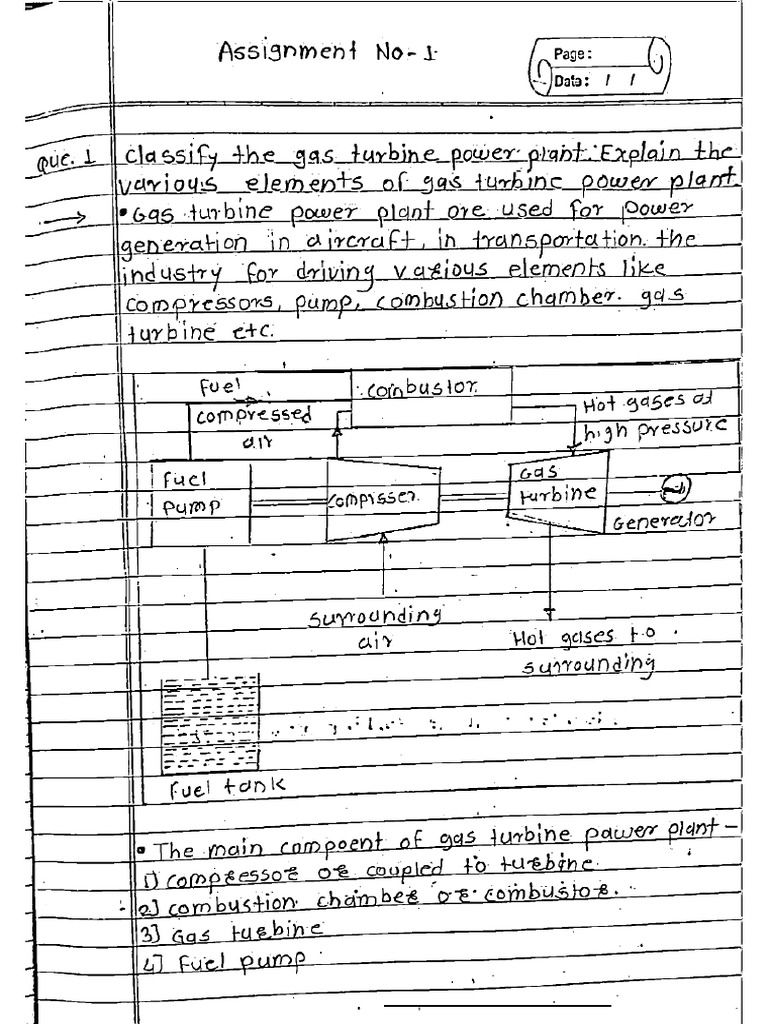 Assignment No-1.
Page:
Date: / /
Que. 1 classify the gas turbine power plant. Explain the
various elements of gas turbine power plant.
→ • Gas turbine power plant are used for power
generation in aircraft, in transportation. the
industry for driving various elements like
compressors, pump, combustion chamber. gas
turbine etc.
fuel
combustor.
compressed
air
Hot gases at
high pressure
fuel
pump
compisser.
Gas
turbine
Generator
surrounding
air
Hot gases to
surrounding
fuel tank
• The main compoent of gas turbine pawer plant-
1) compressor or coupled to turbine.
2] combustion chamber or combustor.
3] Gas turbine
4] fuel pump